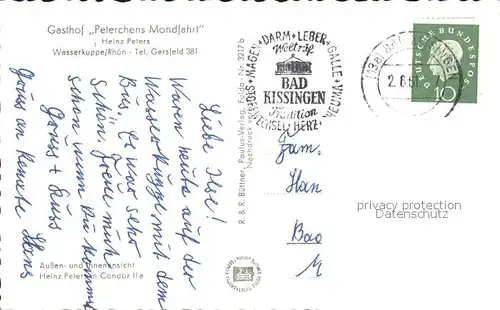 Gasthof „Peterchens Mondfahrt"
Heinz Peters
Wasserkuppe/Rhön - Tel. Gersfeld 381
Liebe Ilse!
Waren heute auf der
Wasserkuppe mit dem
Bus. Es war sehr
schön. Freue mich
schon wenn Du kommst
Gruß + Kuss
Hans
Gruss an Renate
Außen- und Innenansicht
Heinz Peters an Condor IIa
R. & R. Büttner, Paulus-Verlag, Fulda - Nr. 3217 b
Nachdruck verboten
MAGEN + DARM + LEBER + GALLE + RHEUMA
Weltruf
BAD
KISSINGEN
Tradition
HERZ
DEUTSCHE BUNDESPOST
10
Fam.
Han
Bad
privacy protection
Datenschutz